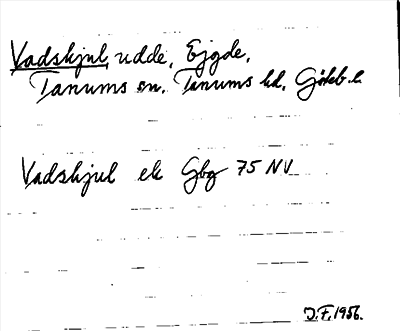 Vadskjul, udde, Ejgde,
Tanums sn. Tanums hd, Göteb. l.
Vadskjul ek Gbg 75 NV
J.F. 1956.